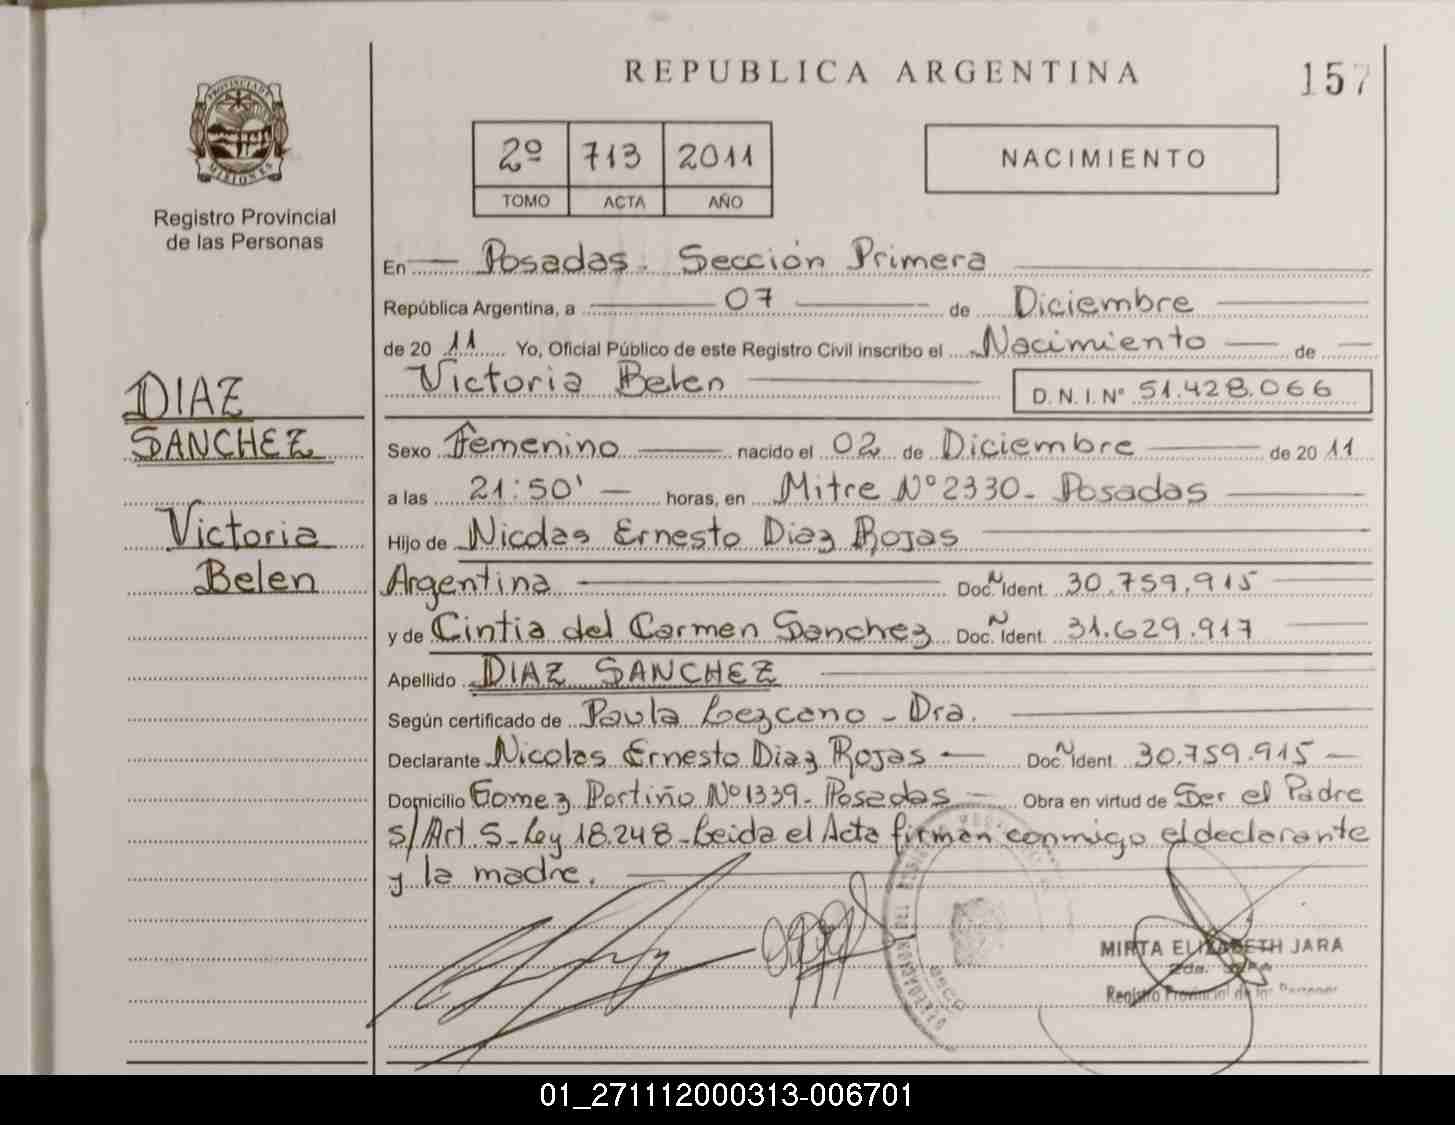 REPUBLICA ARGENTINA
157
2º 713 2011
TOMO ACTA AÑO
NACIMIENTO
PROVINCIA DE MISIONES
Registro Provincial
de las Personas
DIAZ
SANCHEZ
Victoria
Belen
En Posadas. Sección Primera
República Argentina, a 07 de Diciembre
de 20 11 Yo, Oficial Público de este Registro Civil inscribo el Nacimiento de
Victoria Belen
D. N. I. Nº 51.428.066
Sexo Femenino nacido el 02 de Diciembre de 20 11
a las 21:50' horas, en Mitre Nº 2330- Posadas
Hijo de Nicolas Ernesto Diaz Rojas
Argentina Doc. Ident. 30.759.915
y de Cintia del Carmen Sanchez Doc. Ident. 31.629.917
Apellido DIAZ SANCHEZ
Según certificado de Paula Lezcano - Dra.
Declarante Nicolas Ernesto Diaz Rojas Doc. Ident. 30.759.915
Domicilio Gomez Portiño Nº 1339- Posadas Obra en virtud de Ser el Padre
s/Art. 5-Ley 18.248-Leida el Acta firman conmigo el declarante
y la madre.
MIRTA ELIZABETH JARA
Registro Provincial de las Personas
01_271112000313-006701